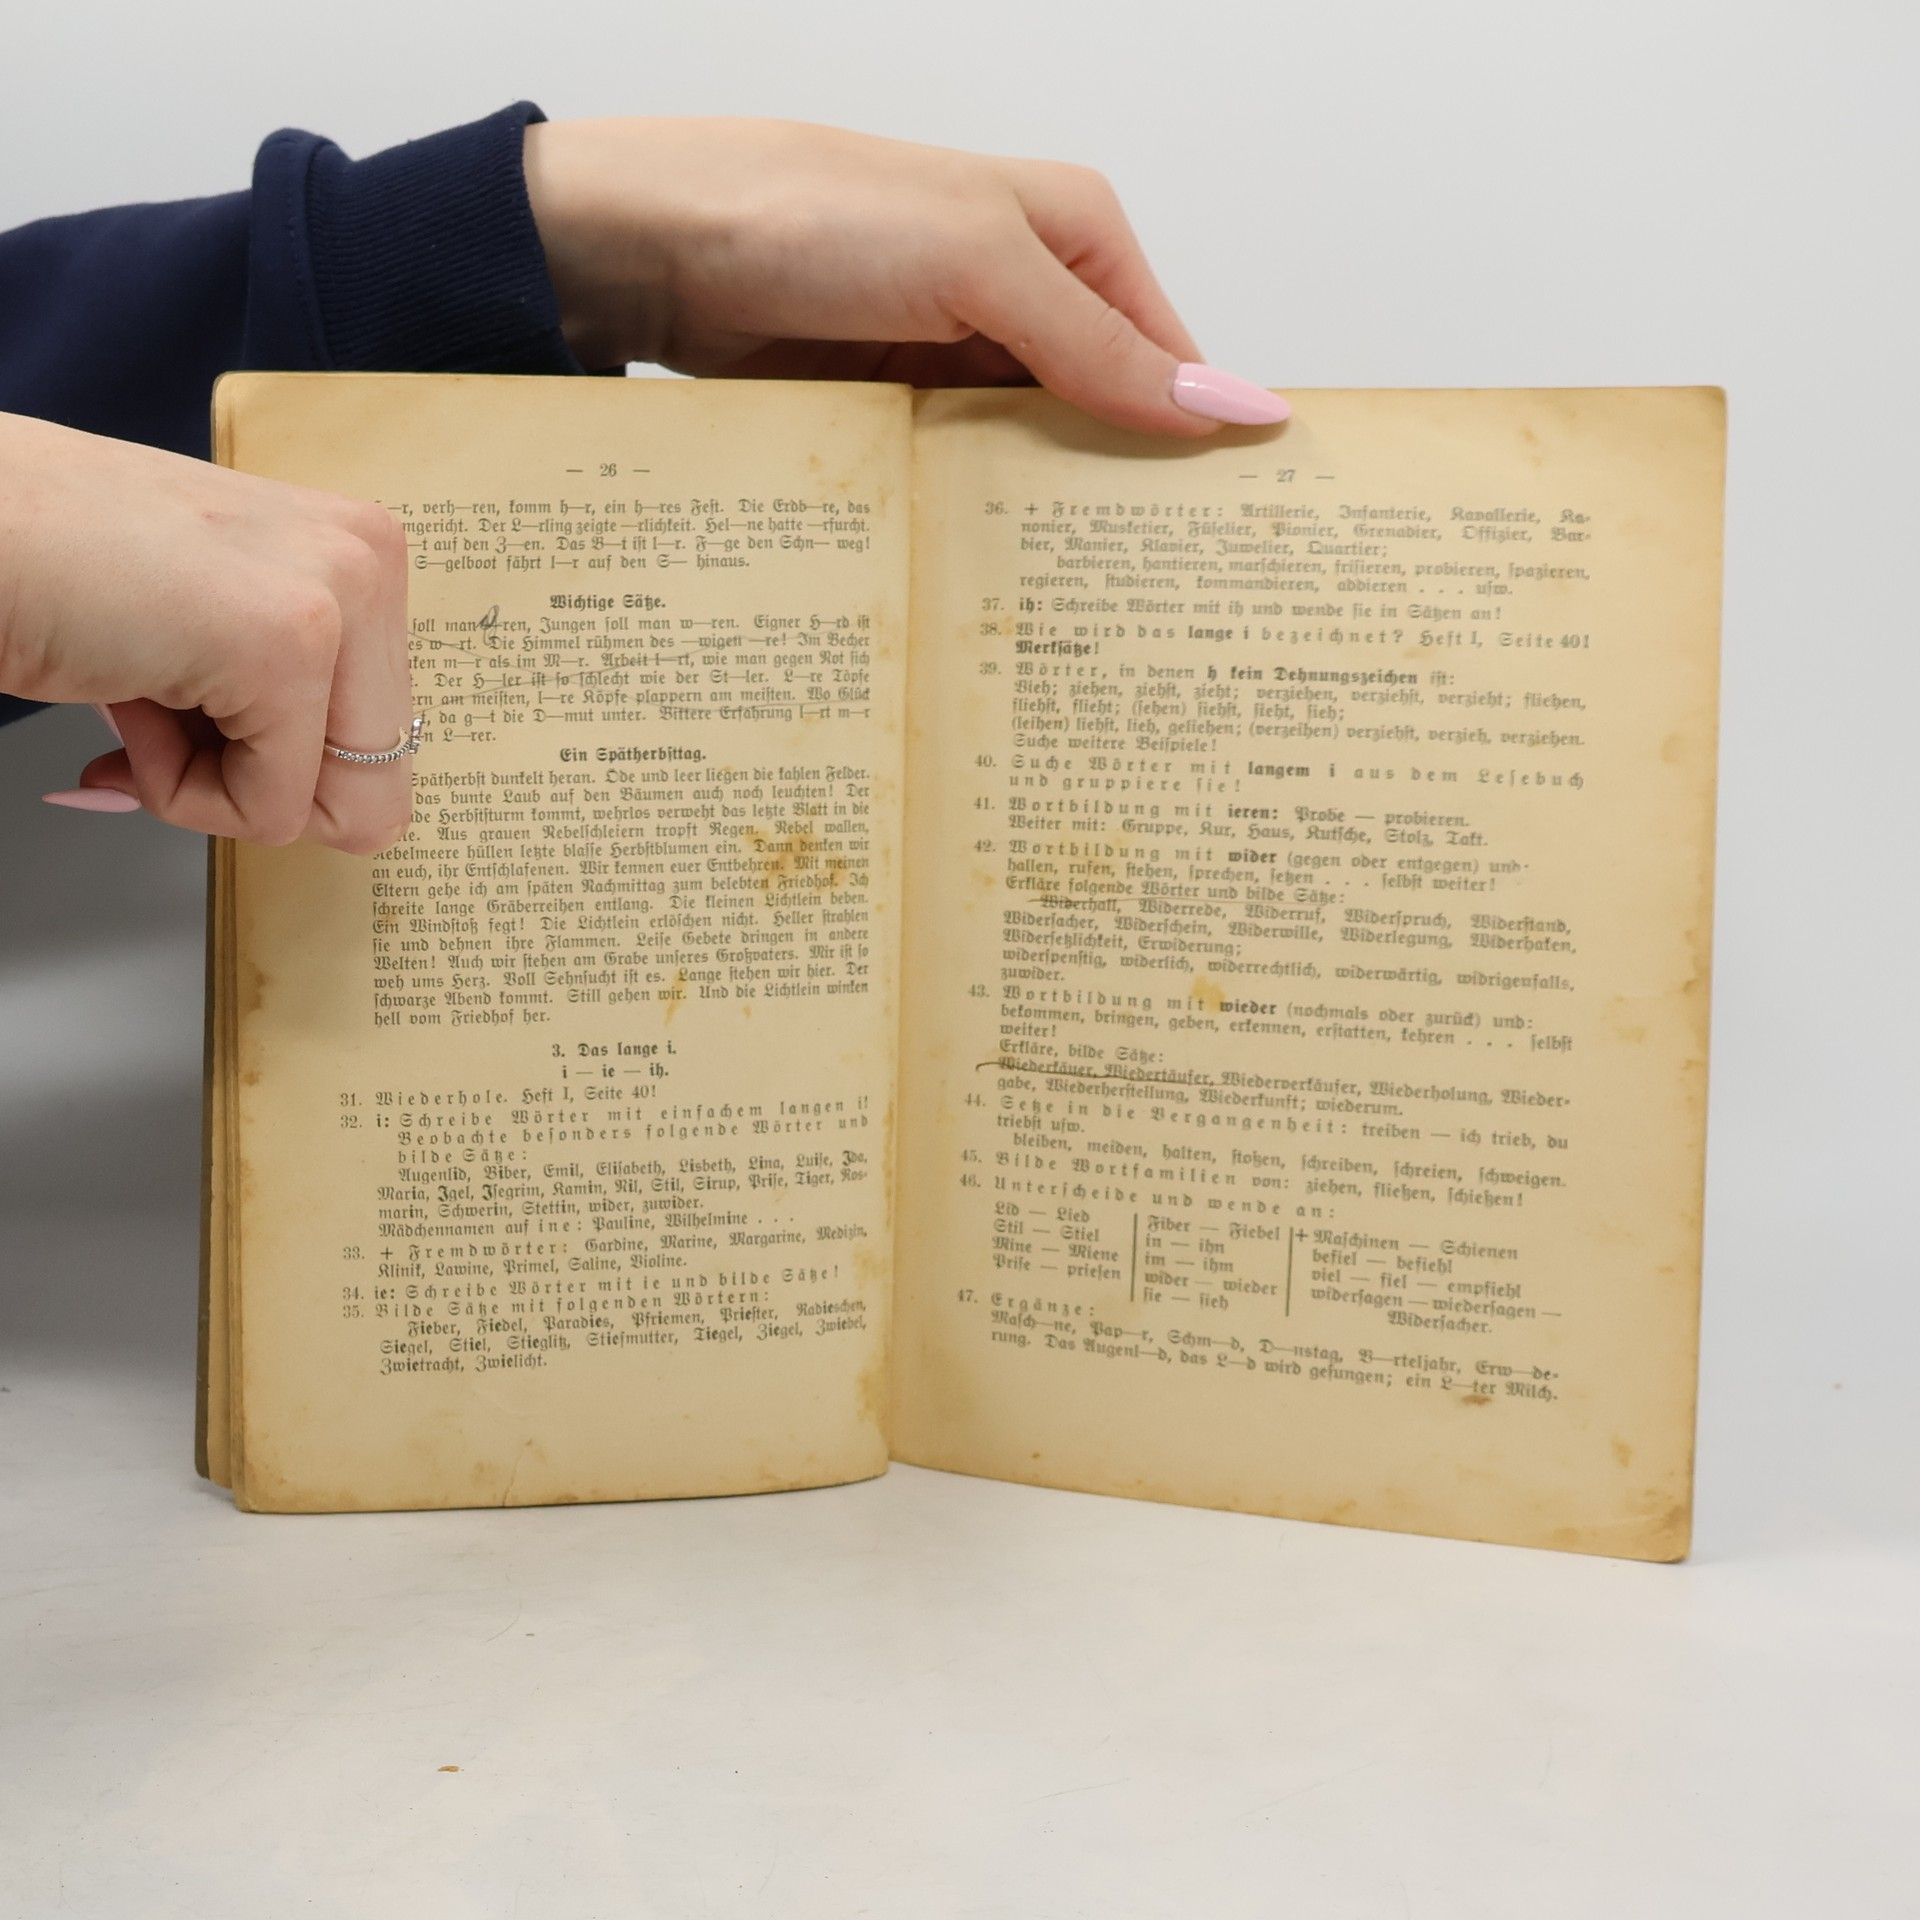 — 26 —
—r, verh—ren, komm h—r, ein h—res Fest. Die Erdb—re, das
mgericht. Der L—rling zeigte —rlichkeit. Hel—ne hatte —rfurcht.
—t auf den Z—en. Das B—t ist l—r. F—ge den Schn— weg!
S—gelboot fährt l—r auf den S— hinaus.
Wichtige Sätze.
soll man —ren, Jungen soll man w—ren. Eigner H—rd ist
es w—rt. Die Himmel rühmen des —wigen —re! Im Becher
ken m—r als im M—r. Arbeit l—rt, wie man gegen Not sich
t. Der H—ler ist so schlecht wie der St—ler. L—re Töpfe
ern am meisten, l—re Köpfe plappern am meisten. Wo Glück
t, da g—t die D—mut unter. Bittere Erfahrung l—rt m—r
n L—rer.
Ein Spätherbsttag.
Spätherbst dunkelt heran. Öde und leer liegen die kahlen Felder.
das bunte Laub auf den Bäumen auch noch leuchten! Der
de Herbststurm kommt, wehrlos verweht das letzte Blatt in die
le. Aus grauen Nebelschleiern tropft Regen. Nebel wallen,
Nebelmeere hüllen letzte blasse Herbstblumen ein. Dann denken wir
an euch, ihr Entschlafenen. Wir kennen euer Entbehren. Mit meinen
Eltern gehe ich am späten Nachmittag zum belebten Friedhof. Ich
schreite lange Gräberreihen entlang. Die kleinen Lichtlein beben.
Ein Windstoß fegt! Die Lichtlein erlöschen nicht. Heller strahlen
sie und dehnen ihre Flammen. Leise Gebete dringen in andere
Welten! Auch wir stehen am Grabe unseres Großvaters. Mir ist so
weh ums Herz. Voll Sehnsucht ist es. Lange stehen wir hier. Der
schwarze Abend kommt. Still gehen wir. Und die Lichtlein winken
hell vom Friedhof her.
3. Das lange i.
i — ie — ih.
31. Wiederhole. Heft I, Seite 40!
32. i: Schreibe Wörter mit einfachem langen i!
Beobachte besonders folgende Wörter und
bilde Sätze:
Augenlid, Biber, Emil, Elisabeth, Lisbeth, Lina, Luise, Ida,
Maria, Igel, Isegrim, Kamin, Nil, Stil, Sirup, Prise, Tiger, Ros-
marin, Schwerin, Stettin, wider, zuwider.
Mädchennamen auf ine: Pauline, Wilhelmine . . .
33. + Fremdwörter: Gardine, Marine, Margarine, Medizin,
Klinik, Lawine, Primel, Saline, Violine.
34. ie: Schreibe Wörter mit ie und bilde Sätze!
35. Bilde Sätze mit folgenden Wörtern:
Fieber, Fiedel, Paradies, Pfriemen, Priester, Radieschen,
Siegel, Stiel, Stieglitz, Stiefmutter, Tiegel, Ziegel, Zwiebel,
Zwietracht, Zwielicht.
— 27 —
36. + Fremdwörter: Artillerie, Infanterie, Kavallerie, Ka-
nonier, Musketier, Füselier, Pionier, Grenadier, Offizier, Bar-
bier, Manier, Klavier, Juwelier, Quartier;
barbieren, hantieren, marschieren, frisieren, probieren, spazieren,
regieren, studieren, kommandieren, addieren . . . usw.
37. ih: Schreibe Wörter mit ih und wende sie in Sätzen an!
38. Wie wird das lange i bezeichnet? Heft I, Seite 40!
Merksätze!
39. Wörter, in denen h kein Dehnungszeichen ist:
Vieh; ziehen, ziehst, zieht; verziehen, verziehst, verzieht; fliehen,
fliehst, flieht; (sehen) siehst, sieht, sieh;
(leihen) liehst, lieh, geliehen; (verzeihen) verziehst, verzieh, verziehen.
Suche weitere Beispiele!
40. Suche Wörter mit langem i aus dem Lesebuch
und gruppiere sie!
41. Wortbildung mit ieren: Probe — probieren.
Weiter mit: Gruppe, Kur, Haus, Kutsche, Stolz, Takt.
42. Wortbildung mit wider (gegen oder entgegen) und:
hallen, rufen, stehen, sprechen, setzen . . . selbst weiter!
Erkläre folgende Wörter und bilde Sätze:
Widerhall, Widerrede, Widerruf, Widerspruch, Widerstand,
Widersacher, Widerschein, Widerwille, Widerlegung, Widerhaken,
Widersetzlichkeit, Erwiderung;
widerspenstig, widerlich, widerrechtlich, widerwärtig, widrigenfalls,
zuwider.
43. Wortbildung mit wieder (nochmals oder zurück) und:
bekommen, bringen, geben, erkennen, erstatten, kehren . . . selbst
weiter!
Erkläre, bilde Sätze:
Wiederkäuer, Wiedertäufer, Wiederverkäufer, Wiederholung, Wieder-
gabe, Wiederherstellung, Wiederkunft; wiederum.
44. Setze in die Vergangenheit: treiben — ich trieb, du
triebst usw.
bleiben, meiden, halten, stoßen, schreiben, schreien, schweigen.
45. Bilde Wortfamilien von: ziehen, fließen, schießen!
46. Unterscheide und wende an:
Lid — Lied
Stil — Stiel
Mine — Miene
Prise — priesen
Fiber — Fiebel
in — ihn
im — ihm
wider — wieder
sie — sieh
+ Maschinen — Schienen
befiel — befiehl
viel — fiel — empfiehl
widersagen — wiedersagen —
Widersacher.
47. Ergänze:
Masch—ne, Pap—r, Schm—d, D—nstag, V—rteljahr, Erw—de-
rung. Das Augenl—d, das L—d wird gesungen; ein L—ter Milch.